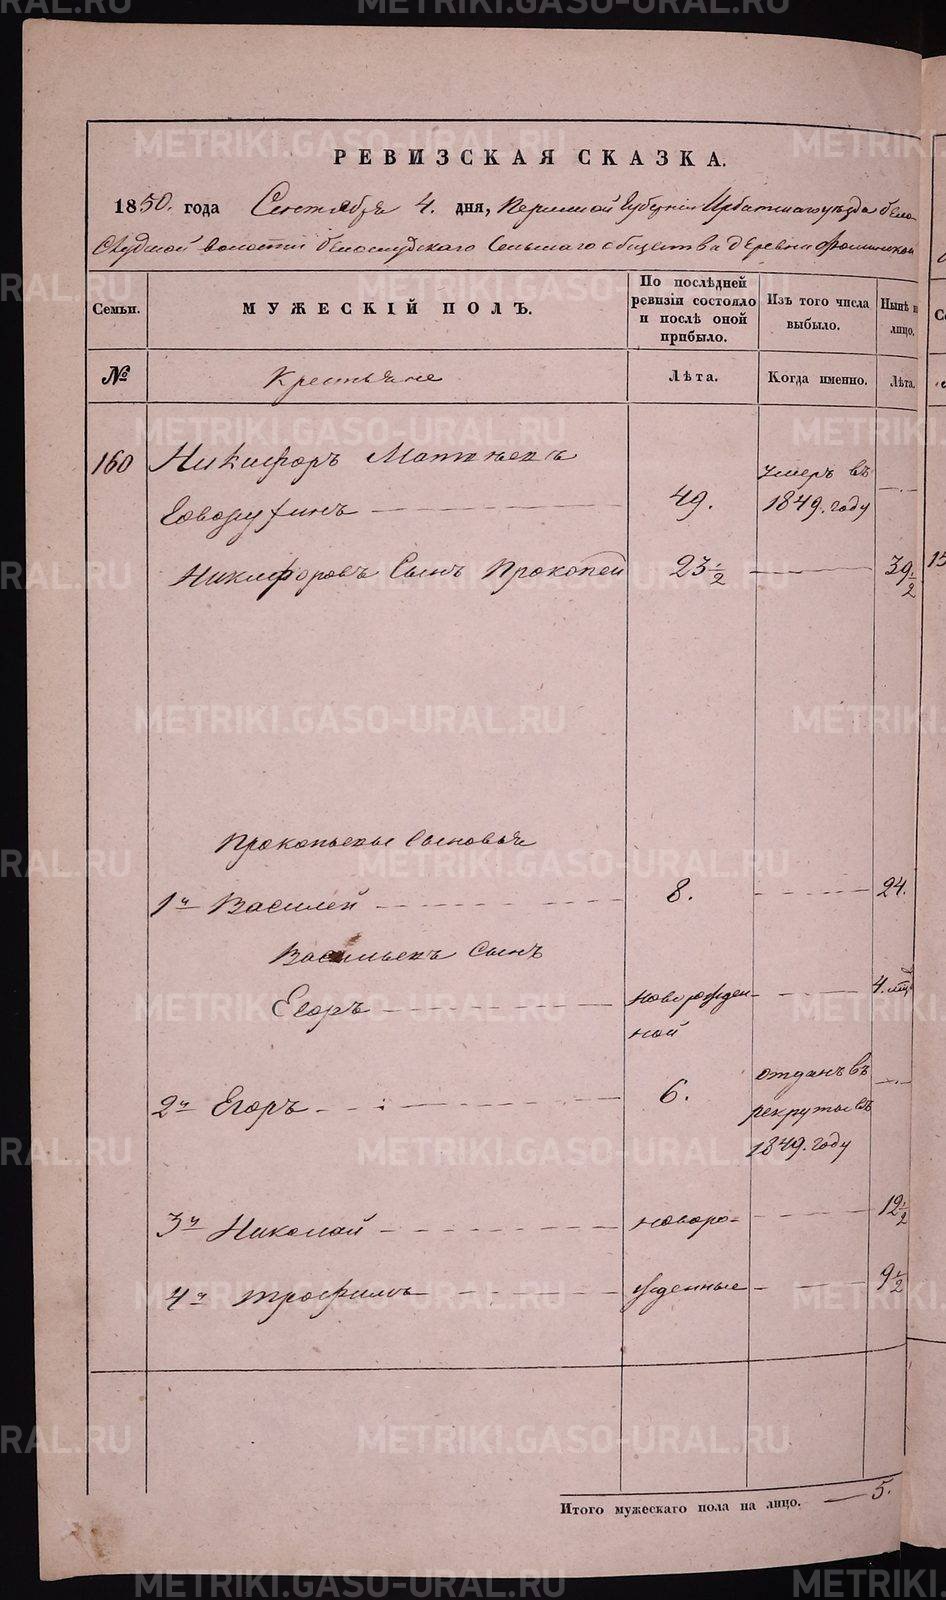 РЕВИЗСКАЯ СКАЗКА.
1850. года Сентября 4. дня, Пермской Губернии Ирбитскаго уезда бело-
слудской волости белослудскаго Сельскаго общества деревни Фоминской
Семьи. МУЖЕСКІЙ ПОЛЪ. По послѣдней ревизіи состояло и послѣ оной прибыло. Изъ того числа выбыло. Нынѣ лицо.
№ Крестьяне Лѣта. Когда именно. Лѣта.
160 Никифоръ Матвѣевъ умеръ въ
Говорухинъ 49. 1849. году
Никифоровъ Сынъ Прокопей 23 1/2 39 1/2
Прокопьевы сыновья
1й Василей 8. 24.
Васильевъ Сынъ
Егоръ новорожден- 4. мѣс
ной
2й Егоръ 6. отданъ въ
рекруты въ
1849. году
3й Николай новоро- 12 1/2
4й Трофимъ жденные 9 1/2
Итого мужескаго пола на лицо. 5.
METRIKI.GASO-URAL.RU